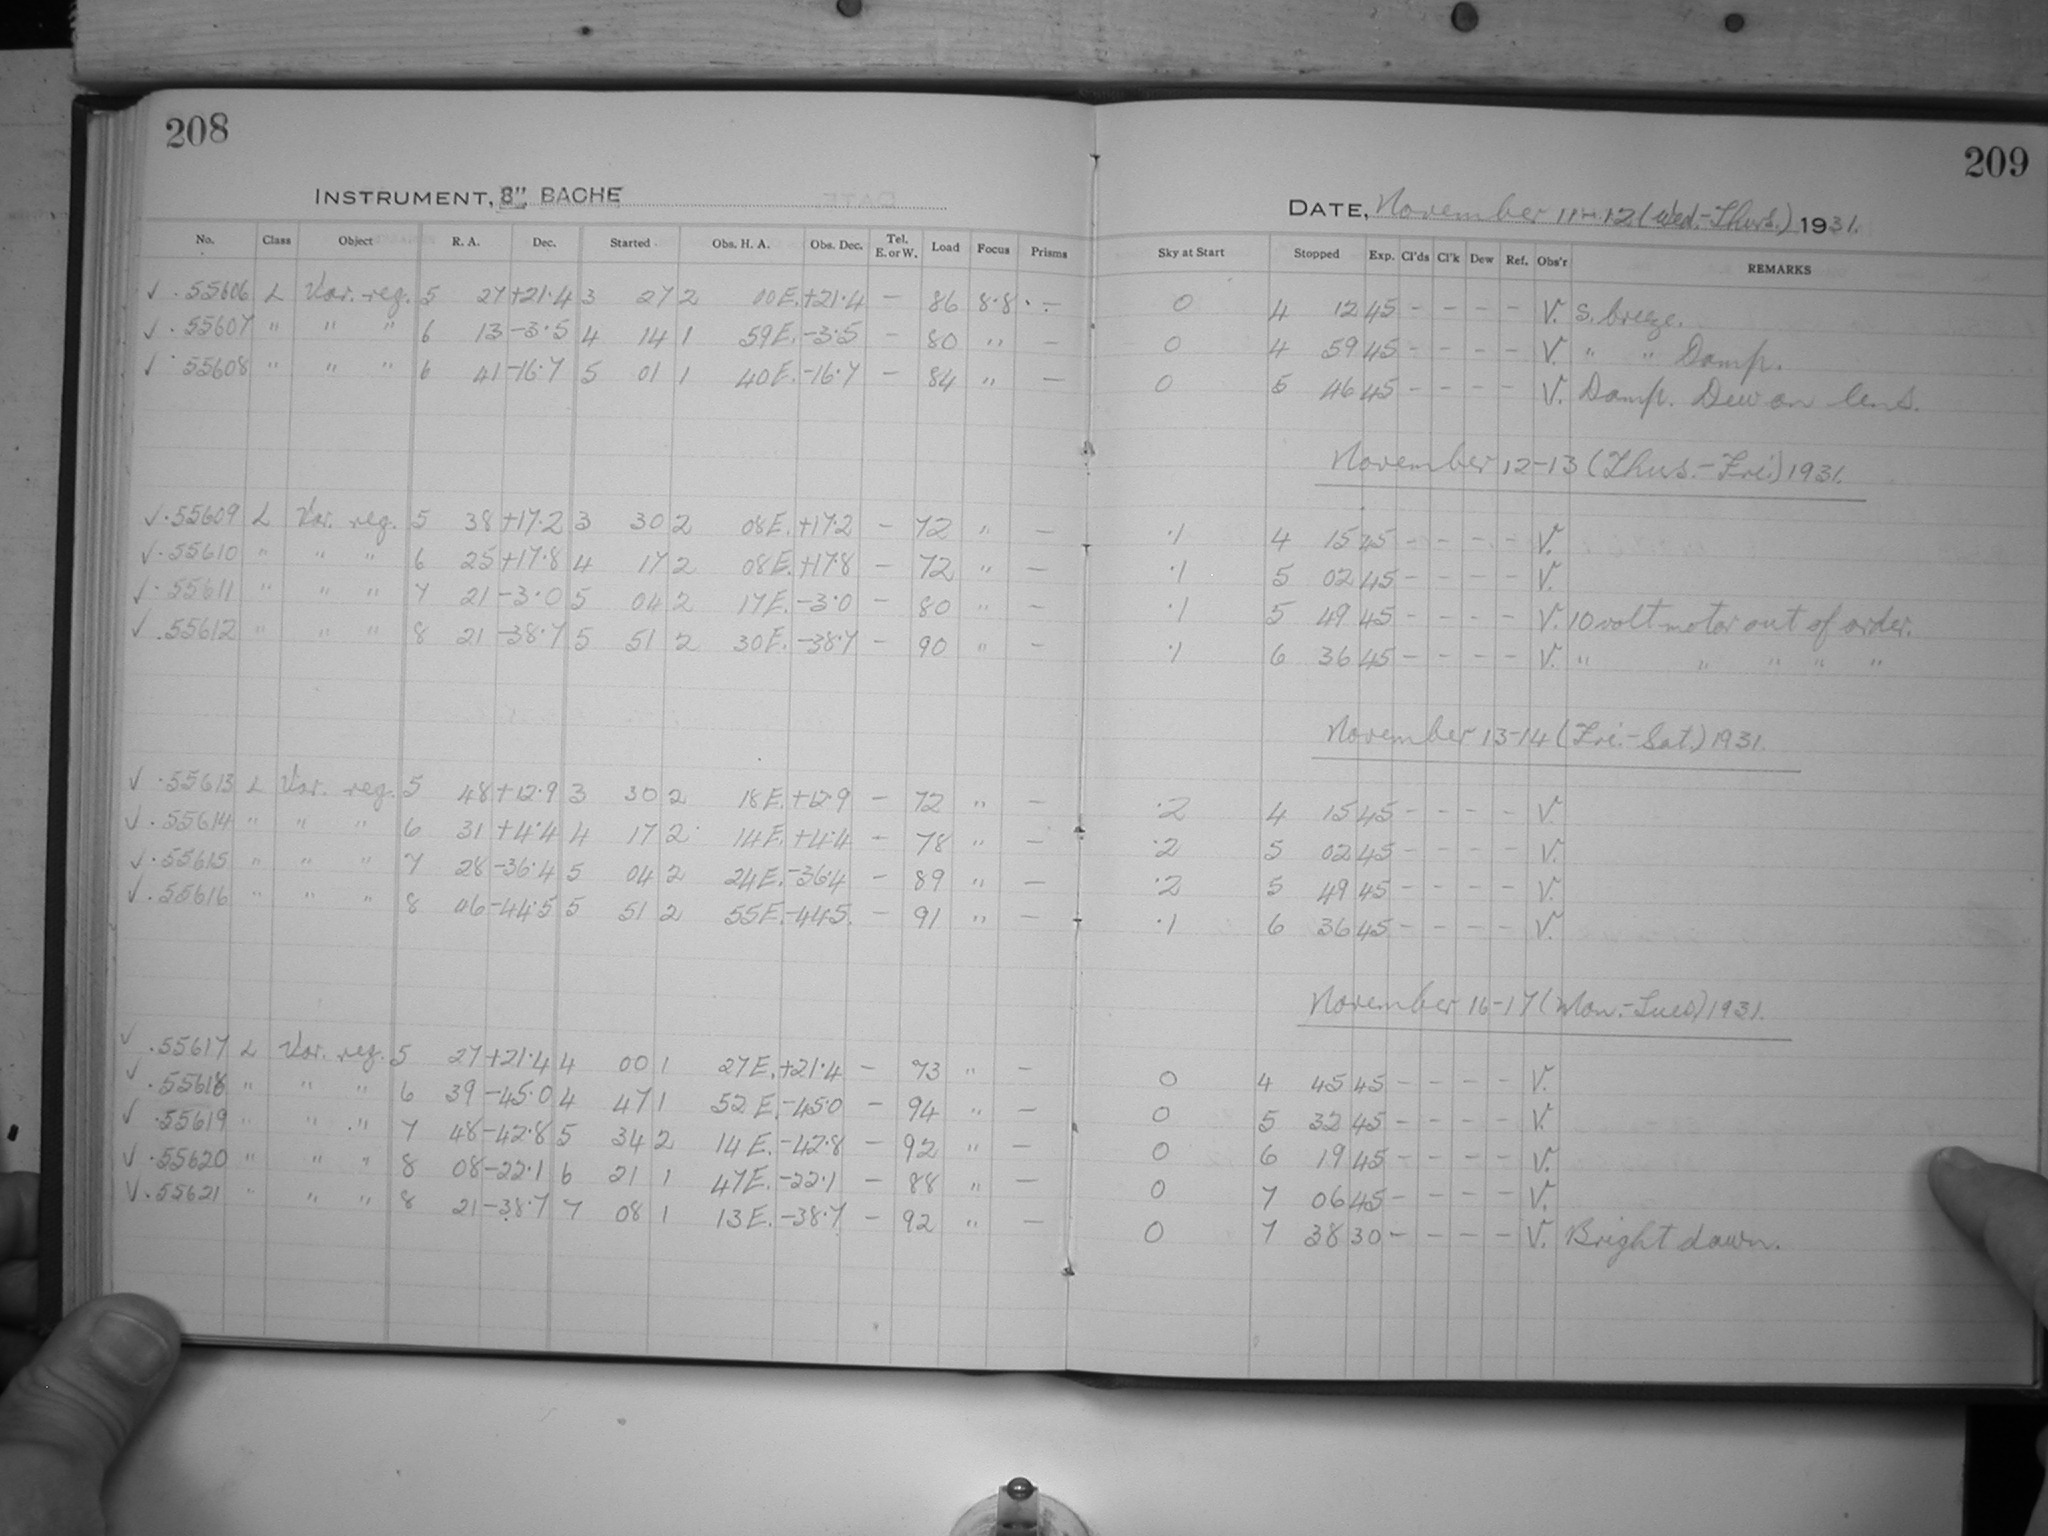 208
INSTRUMENT, 8" BACHE
No. Class Object R. A. Dec. Started Obs. H. A. Obs. Dec. Tel. E. or W. Load Focus Prisms
✓ .55606 L Var. reg. 5 27 +21.4 3 27 2 00E. +21.4 – 86 8.8. –
✓ .55607 " " " 6 13 -3.5 4 14 1 59E. -3.5 – 80 " –
✓ .55608 " " " 6 41 -16.7 5 01 1 40E. -16.7 – 84 " –
✓ .55609 L Var. reg. 5 38 +17.2 3 30 2 08E. +17.2 – 72 " –
✓ .55610 " " " 6 25 +17.8 4 17 2 08E. +17.8 – 72 " –
✓ .55611 " " " 7 21 -3.0 5 04 2 17E. -3.0 – 80 " –
✓ .55612 " " " 8 21 -38.7 5 51 2 30E. -38.7 – 90 " –
✓ .55613 L Var. reg. 5 48 +12.9 3 30 2 18E. +12.9 – 72 " –
✓ .55614 " " " 6 31 +4.4 4 17 2 14E. +4.4 – 78 " –
✓ .55615 " " " 7 28 -36.4 5 04 2 24E. -36.4 – 89 " –
✓ .55616 " " " 8 06 -44.5 5 51 2 55E. -44.5. – 91 " –
✓ .55617 L Var. reg. 5 27 +21.4 4 00 1 27E. +21.4 – 73 " –
✓ .55618 " " " 6 39 -45.0 4 47 1 52E. -45.0 – 94 " –
✓ .55619 " " " 7 48 -42.8 5 34 2 14E. -42.8 – 92 " –
✓ .55620 " " " 8 08 -22.1 6 21 1 47E. -22.1 – 88 " –
✓ .55621 " " " 8 21 -38.7 7 08 1 13E. -38.7 – 92 " –
209
DATE, November 11-12 (Wed.-Thurs.) 1931.
Sky at Start Stopped Exp. Cl'ds Cl'k Dew Ref. Obs'r REMARKS
0 4 12 45 – – – – V. S. breeze.
0 4 59 45 – – – – V. " " Damp.
0 5 46 45 – – – – V. Damp. Dew on lens.
November 12-13 (Thurs.-Fri.) 1931.
.1 4 15 45 – – – – V.
.1 5 02 45 – – – – V.
.1 5 49 45 – – – – V. 10 volt motor out of order.
.1 6 36 45 – – – – V. " " " " "
November 13-14 (Fri.-Sat.) 1931.
.2 4 15 45 – – – – V.
.2 5 02 45 – – – – V.
.2 5 49 45 – – – – V.
.1 6 36 45 – – – – V.
November 16-17 (Mon.-Tues) 1931.
0 4 45 45 – – – – V.
0 5 32 45 – – – – V.
0 6 19 45 – – – – V.
0 7 06 45 – – – – V.
0 7 38 30 – – – – V. Bright dawn.